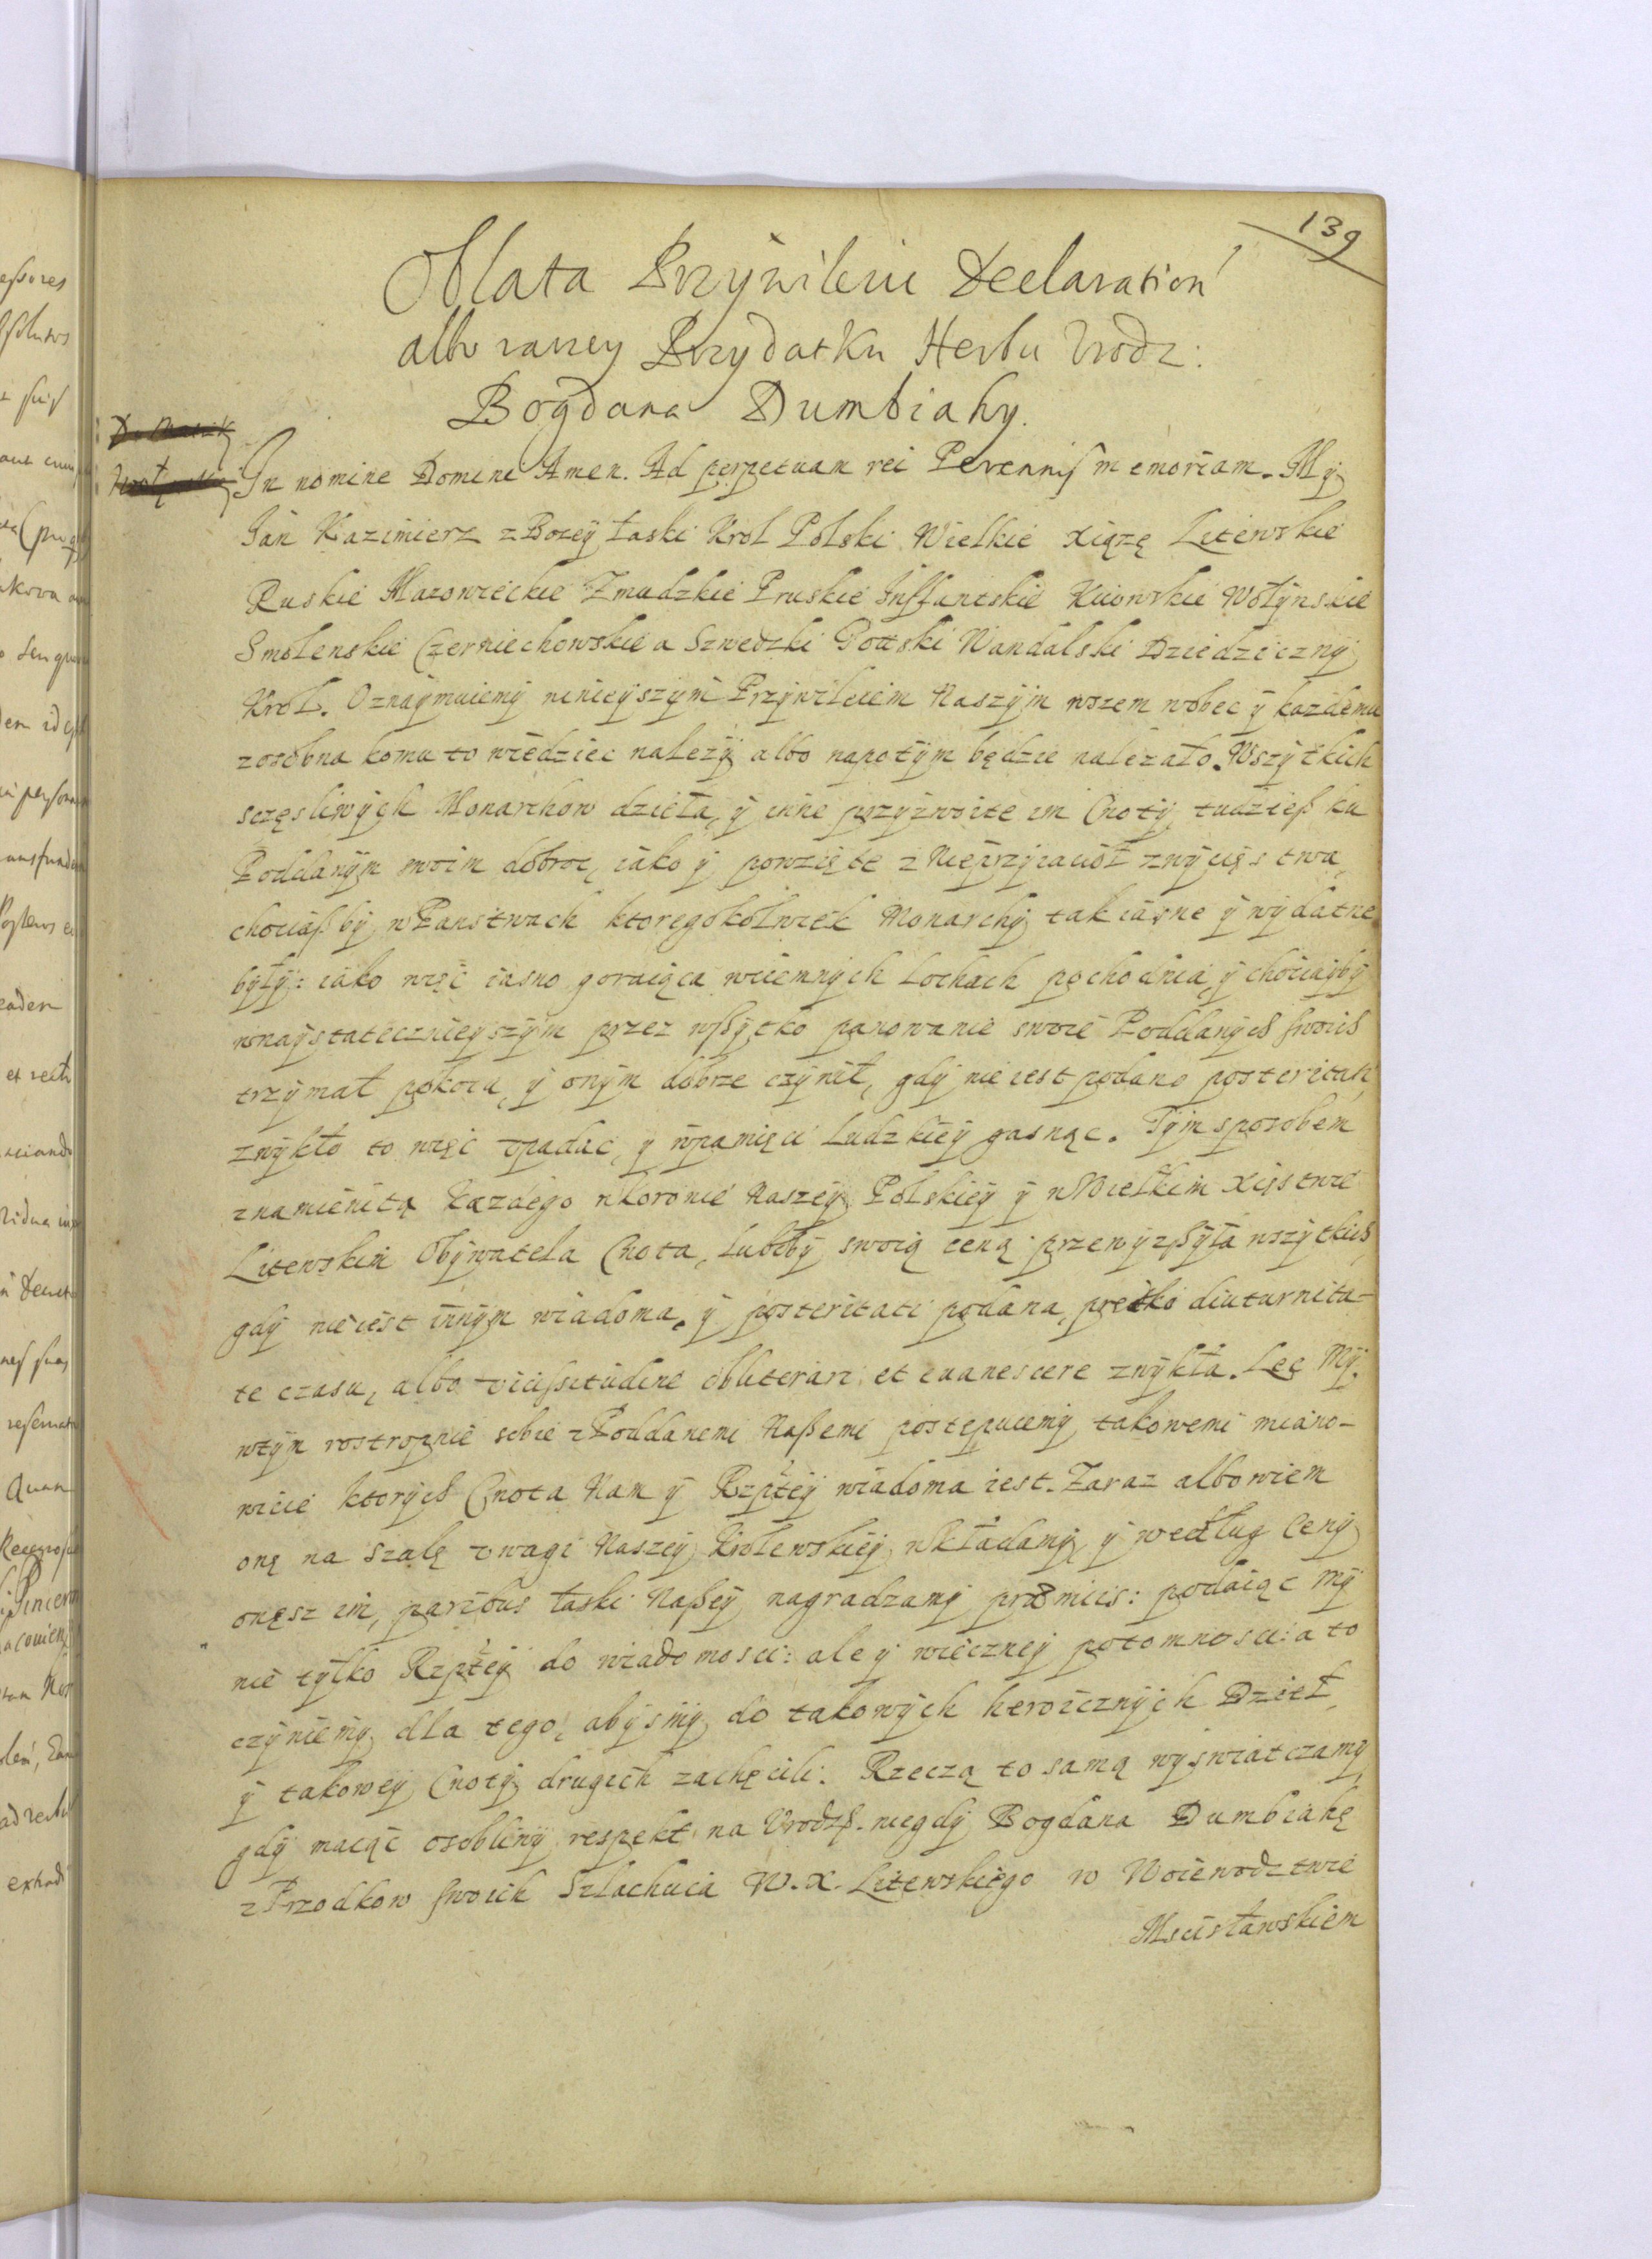 139
Oblata Przywileiu Declaration
albo raczey Przydatku Herbu Vrodz:
Bogdana Dumbiahy.
In nomine Domini Amen. Ad perpetuam rei Perennis memoriam. My
Jan Kazimierz z Bozey łaski Krol Polski Wielkie xiązę Litewskie
Ruskie Mazowieckie Zmudzkie Pruskie Inflantskie Kiiowskie Wołynskie
Smolenskie Czerniechowskie a Szwedzki Gottski Wandalski Dziedziczny
Krol. Oznaymuiemy ninieyszym Przywileiem Naszym wszem wobec y kazdemu
zosobna komu to wiedziec nalezy albo napotym będzie nalezało. Wszytkich
sczęsliwych Monarchow dzieła, y inne przyzwoite im Cnoty, tudzieß ku
Poddanym swoim dobroc, iako y powzięte z Nieprzyiacioł zwycięstwa
chociaßby w Panstwach ktoregokolwiek Monarchy tak iasne y wydatne
były: iako więc iasno goraiąca wciemnych Lochach pochodnia, y chociayby
wnaystatecznieyszym przez wßytko panowanie swoie Poddanych swoich
trzymał pokoiu, y onym dobrze czynił, gdy nie iest podano posteritati,
zwykło to więc vpadac, y wpamięci Ludzkiey gasnąc. Tym sposobem
znamienita kazdego wkoronie Naszey Polskiey y w Wielkim Xięstwie
Litewskim Obywatela Cnota, Luboby swoią ceną przewyzßyła wszytkich,
gdy nie iest innym wiadoma, y posteritati podana, prętko diuturnita-
te czasu, albo vicissitudine obliterari et euanescere zwykła. Lec My.
wtym rostropnie sobie z Poddanemi Naßemi postępuiemy, takowemi miano-
wicie ktorych Cnota Nam y Rzptey wiadoma iest. Zaraz albowiem
onę na Szalę vwagi Naszey Krolewskiey wkładamy, y według Ceny
onęsz im, paribus łaski Naßey nagradzamy præmiis: podaiąc My
nie tylko Rzptey do wiadomosci: ale y wieczney potomnosci: a to
czyniemy dla tego, abysmy do takowych heroicznych Dzieł,
y takowey Cnoty drugich zachęcili. Rzeczą to samą wyswiatczamy,
gdy maiąc osobliwy respekt na Vrodz. niegdy Bogdana Dumbiahę
z Przodkow swoich Szlachcica W. X. Litewskiego w Woiewodztwie
Mscisławskiem